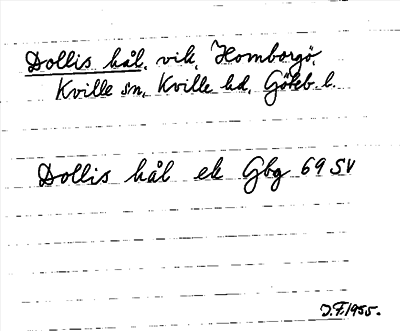 Dollis hål, vik, Homborgö,
Kville sn, Kville hd, Göteb. l.
Dollis hål ek Gbg 69 SV
J.F. 1955.